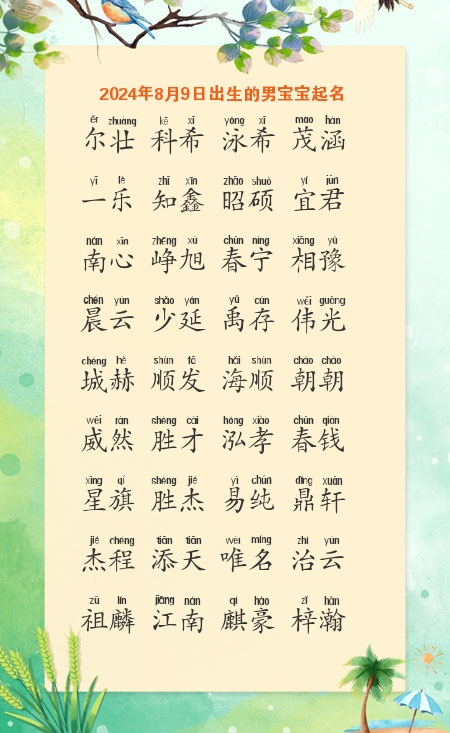 2024年8月9日出生的男宝宝起名
ěr zhuàng kē xī yǒng xī mào hán
尔壮 科希 泳希 茂涵
yī lè zhī xīn zhāo shuò yí jūn
一乐 知鑫 昭硕 宜君
nán xīn zhēng xù chūn níng xiāng yù
南心 峥旭 春宁 相豫
chén yún shǎo yán yǔ cún wěi guāng
晨云 少延 禹存 伟光
chéng hè shùn fā hǎi shùn cháo cháo
城赫 顺发 海顺 朝朝
wēi rán shèng cái hóng xiào chūn qián
威然 胜才 泓孝 春钱
xīng qí shèng jié yì chún dǐng xuān
星旗 胜杰 易纯 鼎轩
jié chéng tiān tiān wéi míng zhì yún
杰程 添天 唯名 治云
zǔ lín jiāng nán qí háo zǐ hàn
祖麟 江南 麒豪 梓瀚